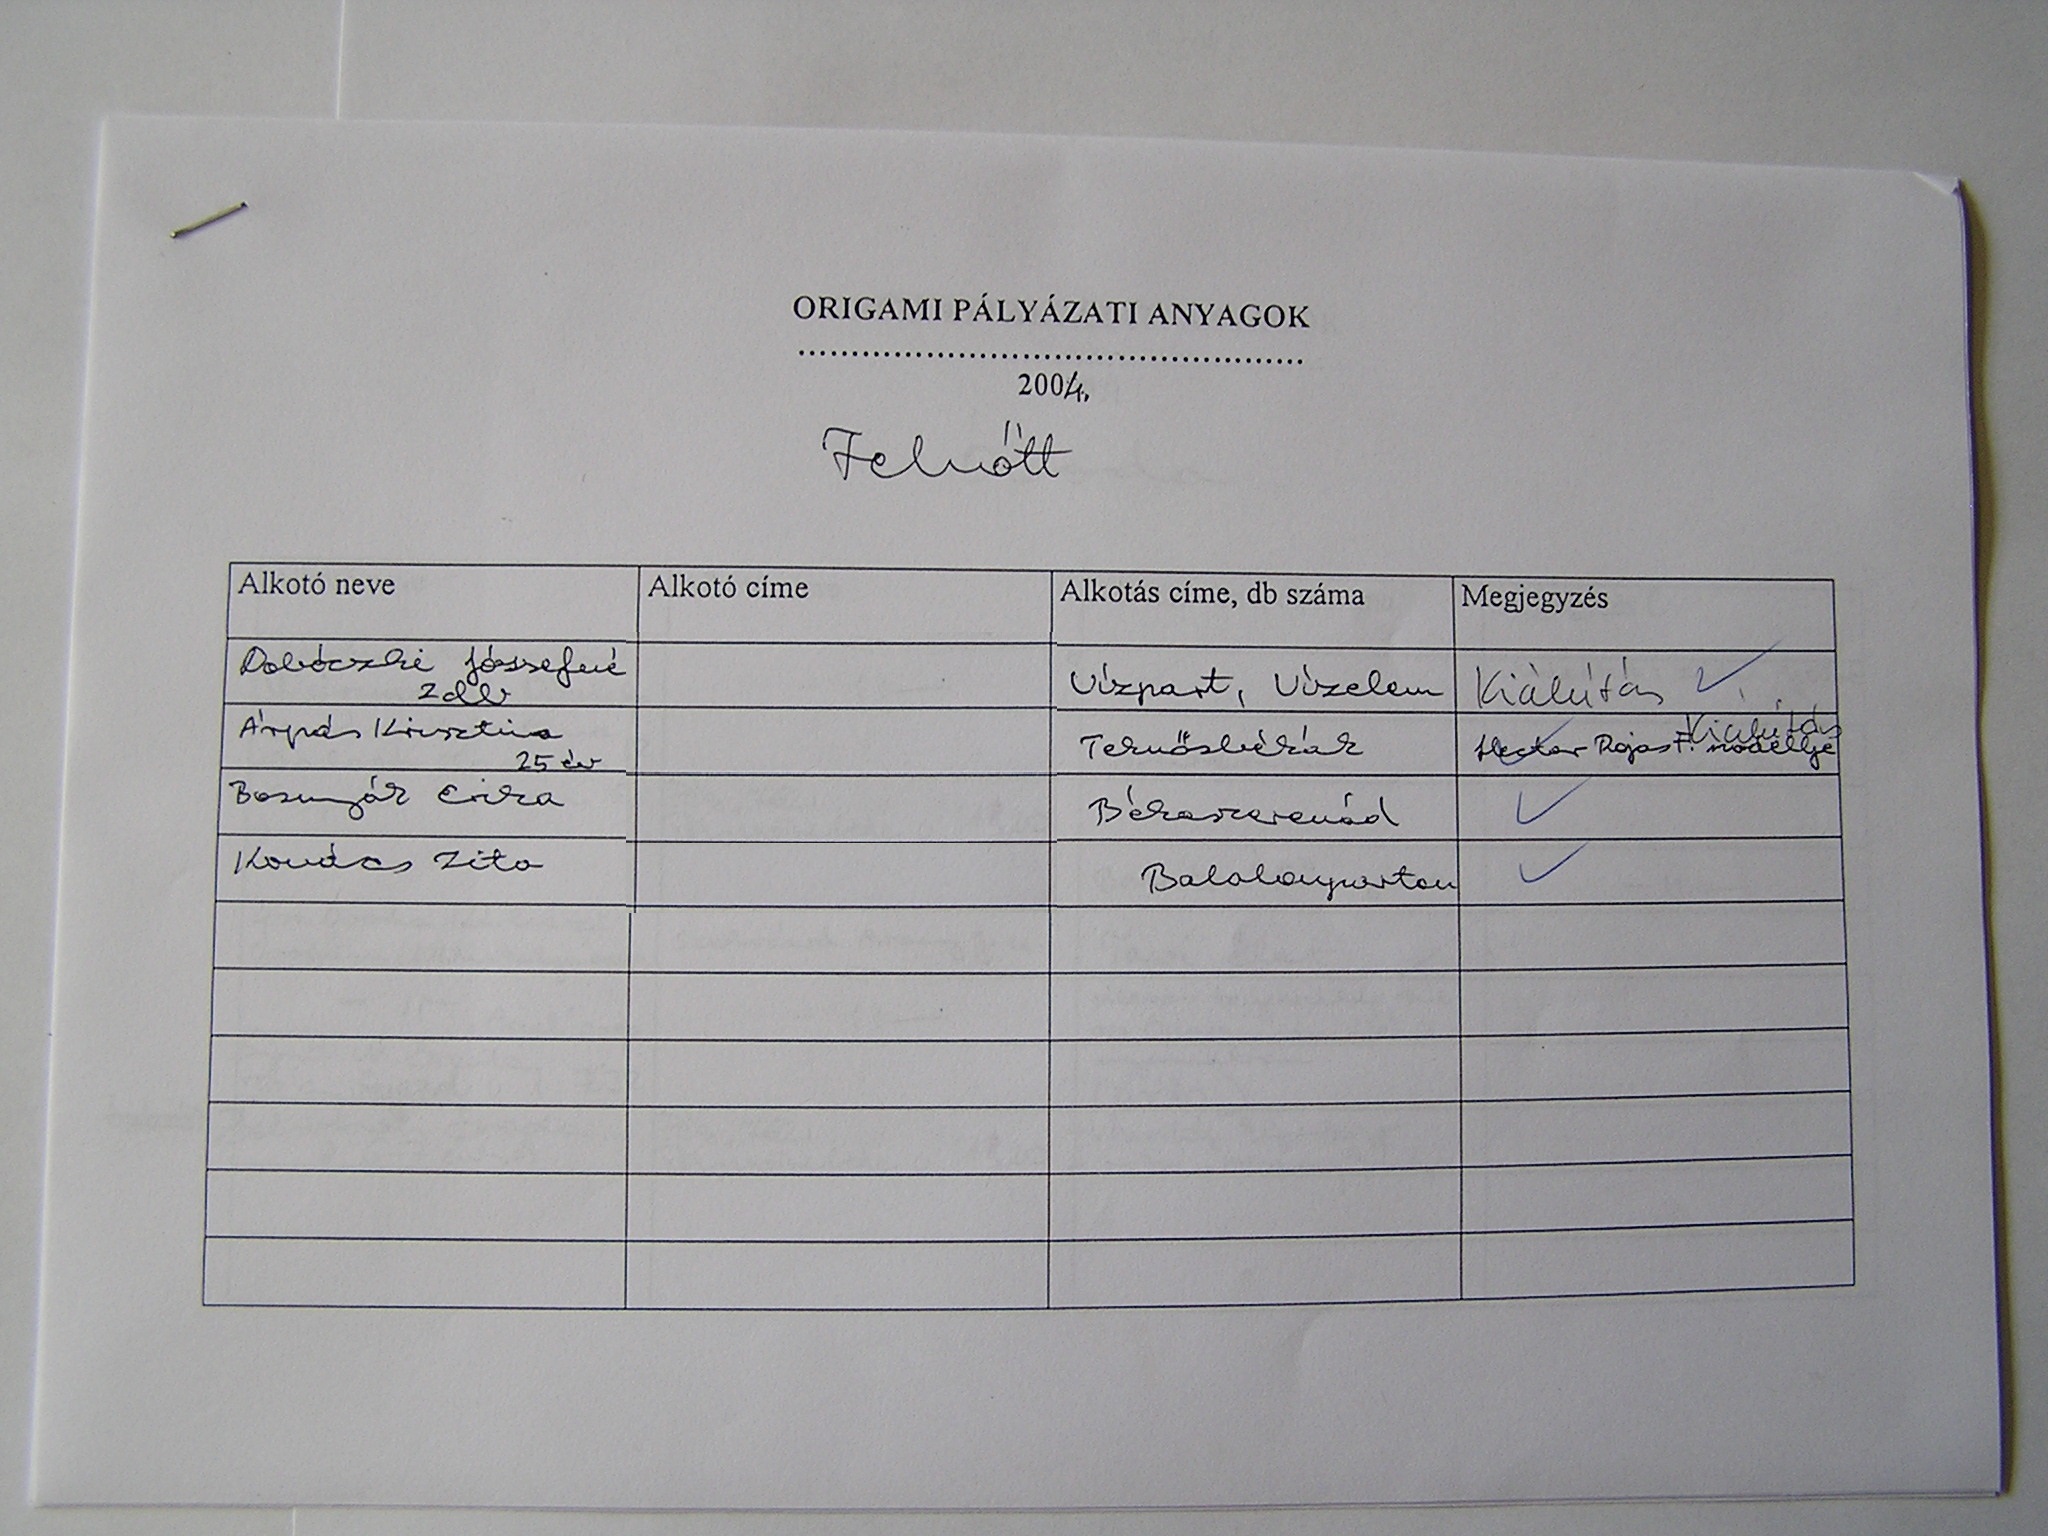 ORIGAMI PÁLYÁZATI ANYAGOK
................................................
2004.
Felnőtt
Alkotó neve Alkotó címe Alkotás címe, db száma Megjegyzés
Dobóczki Józsefné Vízpart, Vízelem Kiállítás ✓
2 db
Árpás Krisztina Teknősbékák Kiállítás
25 év Hector Rojas F. modellje
Bosnyák Erika Békaszerenád ✓
Kovács Zita Balatonparton ✓